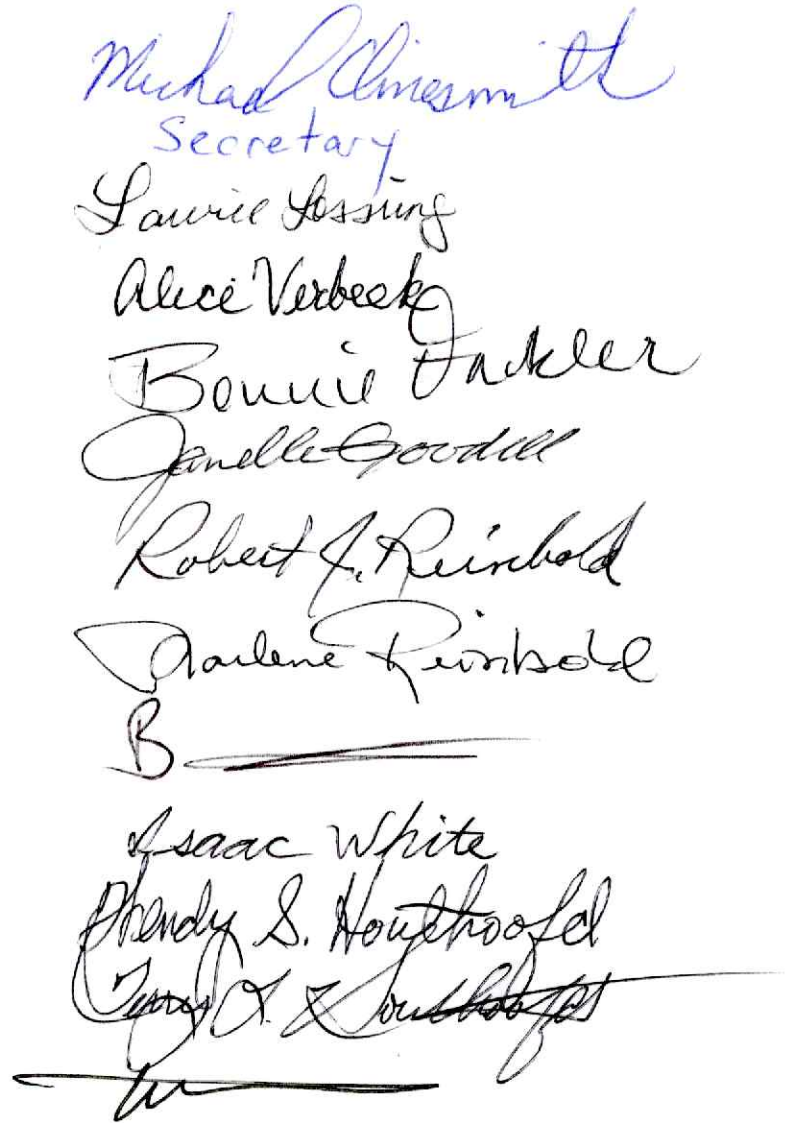 Michael Clinesmith
Secretary
Laurie Lessing
Alice Verbeek
Bonnie
Janelle Goodell
Robert J. Reinbold
Darlene Reinbold
B
Isaac White
S. Houthoofd
Terry L. Houthoofd